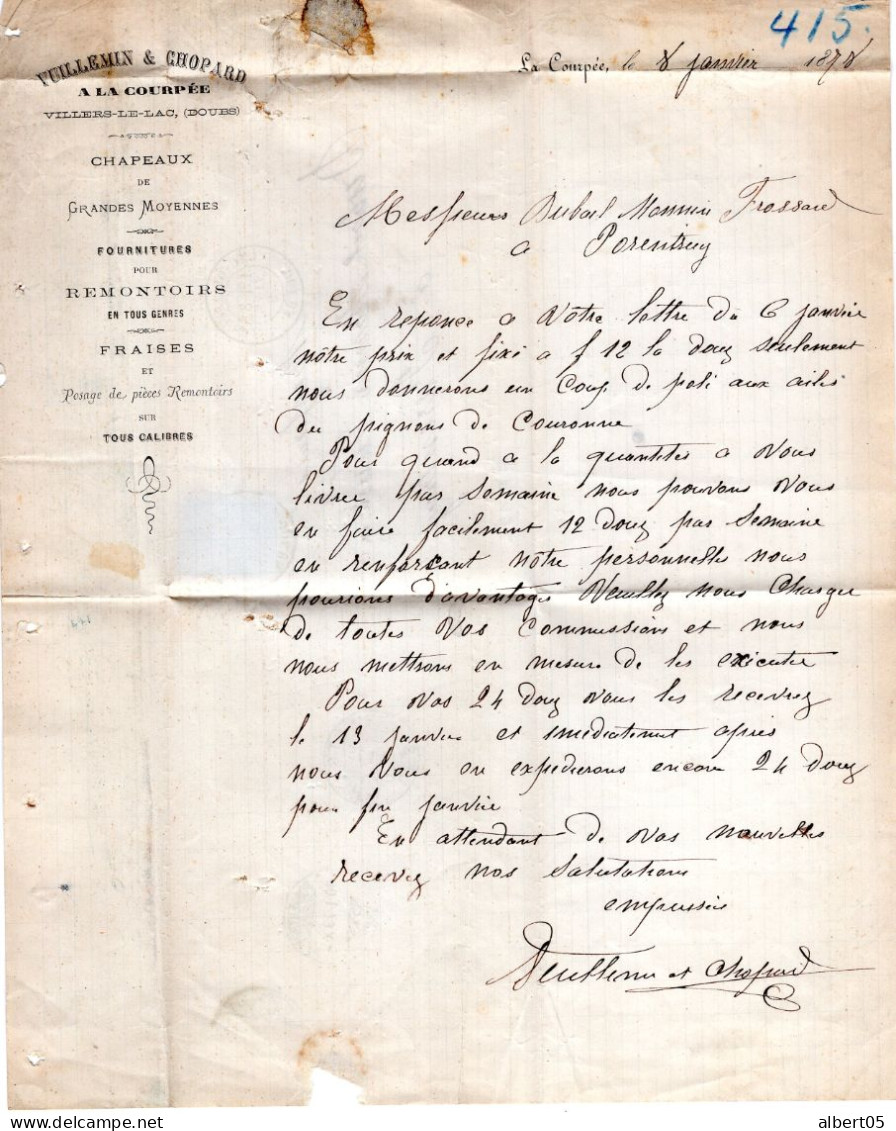 415.
VUILLEMIN & CHOPARD
A LA COURPÉE
VILLERS-LE-LAC, (DOUBS)
CHAPEAUX
DE
GRANDES MOYENNES
FOURNITURES
POUR
REMONTOIRS
EN TOUS GENRES
FRAISES
ET
Posage de pièces Remontoirs
SUR
TOUS CALIBRES
La Courpée, le 8 janvier 1878
Messieurs Dubail Monnin Frossard
a Porentruy
En reponce a Votre lettre du 6 janvier
nôtre prix et fixé a f 12 la douz seulement
nous donnerons un Coup de poli aux ailes
du pignons de Couronne
Pour quand a la quantités a Vous
livrer par Semaine nous pouvons Vous
en faire facilement 12 douz par Semaine
en renforcant nôtre personnelle nous
pourions d'avantages Veuillez nous Charger
de toutes Vos Commissions et nous
nous mettrons en mesure de les executer
Pour Vos 24 douz Vous les recevrez
le 13 janvier et imediatement après
nous Vous en expedierons encore 24 douz
pour fin janvier
En attendant de Vos nouvelles
recevez nos Salutations
empressées
Vuillemin et Chopard
albert05